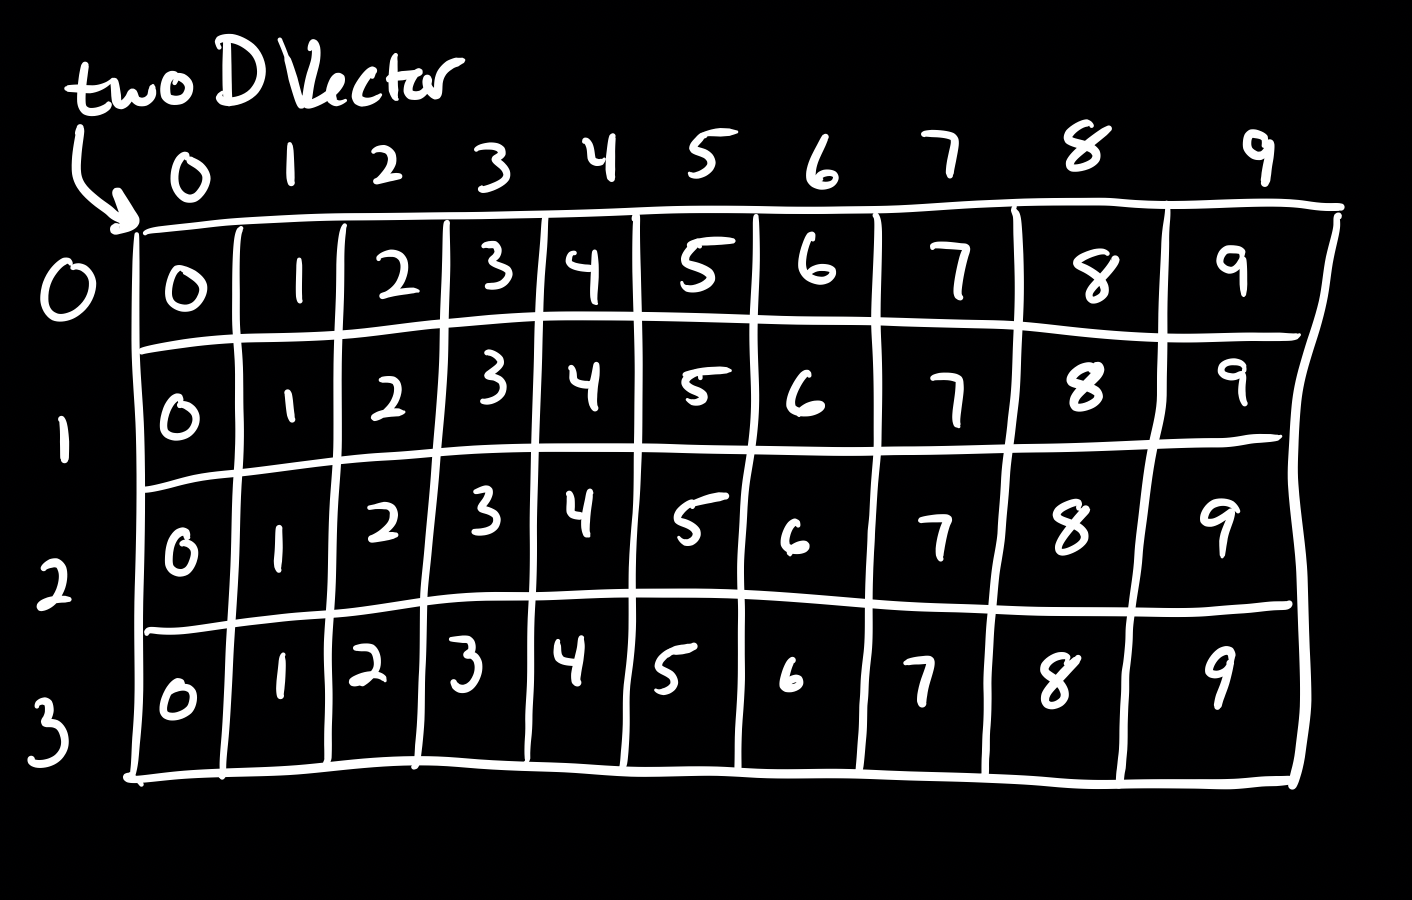 two D Vector
0 1 2 3 4 5 6 7 8 9
0 0 1 2 3 4 5 6 7 8 9
1 0 1 2 3 4 5 6 7 8 9
2 0 1 2 3 4 5 6 7 8 9
3 0 1 2 3 4 5 6 7 8 9